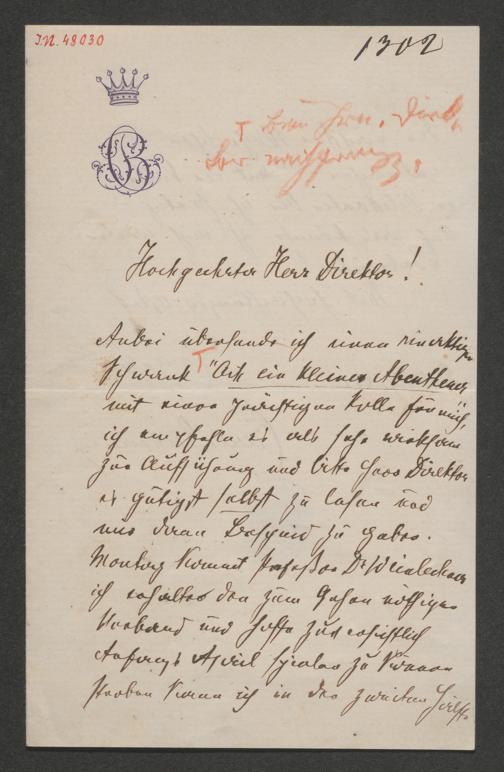 I.N. 48030
1302
beim Hrn. Direk
Hochgeehrter Herr Direktor!
Anbei übersende ich einen einaktigen
Schwank "Ach ein kleines Abentheuer"
mit einer prächtigen Rolle für mich,
ich empfehle es als sehr wirksam
zur Aufführung und bitte Herr Direktor
es gütigst selbst zu lesen und
mir dann Bescheid zu geben.
Montag kommt Professor Dr
ich erhalte den zum Gehen nöthigen
Verband und hoffe zuversichtlich
Anfangs April spielen zu können
Proben kann ich in der zweiten Hälfte